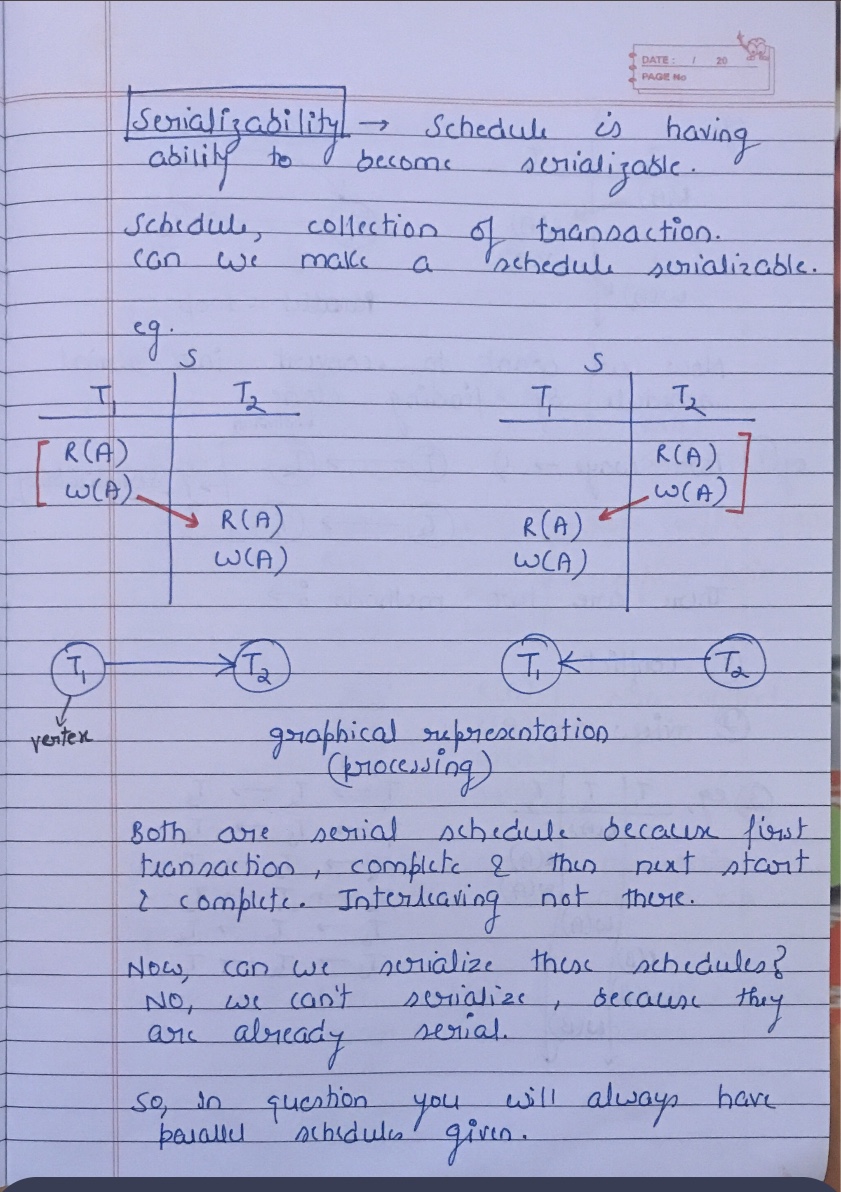 DATE: / 20
PAGE No
Serializability → Schedule is having
ability to become serializable.
Schedule, collection of transaction.
can we make a schedule serializable.
eg.
S
T1 T2
R(A)
W(A)
R(A)
W(A)
S
T1 T2
R(A)
W(A)
R(A)
W(A)
T1 → T2
T1 ← T2
vertex
graphical representation
(processing)
Both are serial schedule because first
transaction, complete & then next start
& complete. Interleaving not there.
Now, can we serialize these schedules?
NO, we can't serialize, because they
are already serial.
So, in question you will always have
parallel schedules given.